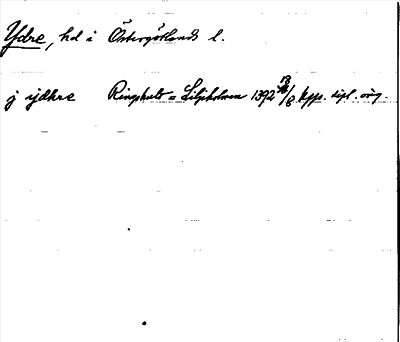 Ydre, hd i Östergötlands l.
j ydhre Ringshult = Liljeholmen 1392 18/8 Kgps. dipl. orig.